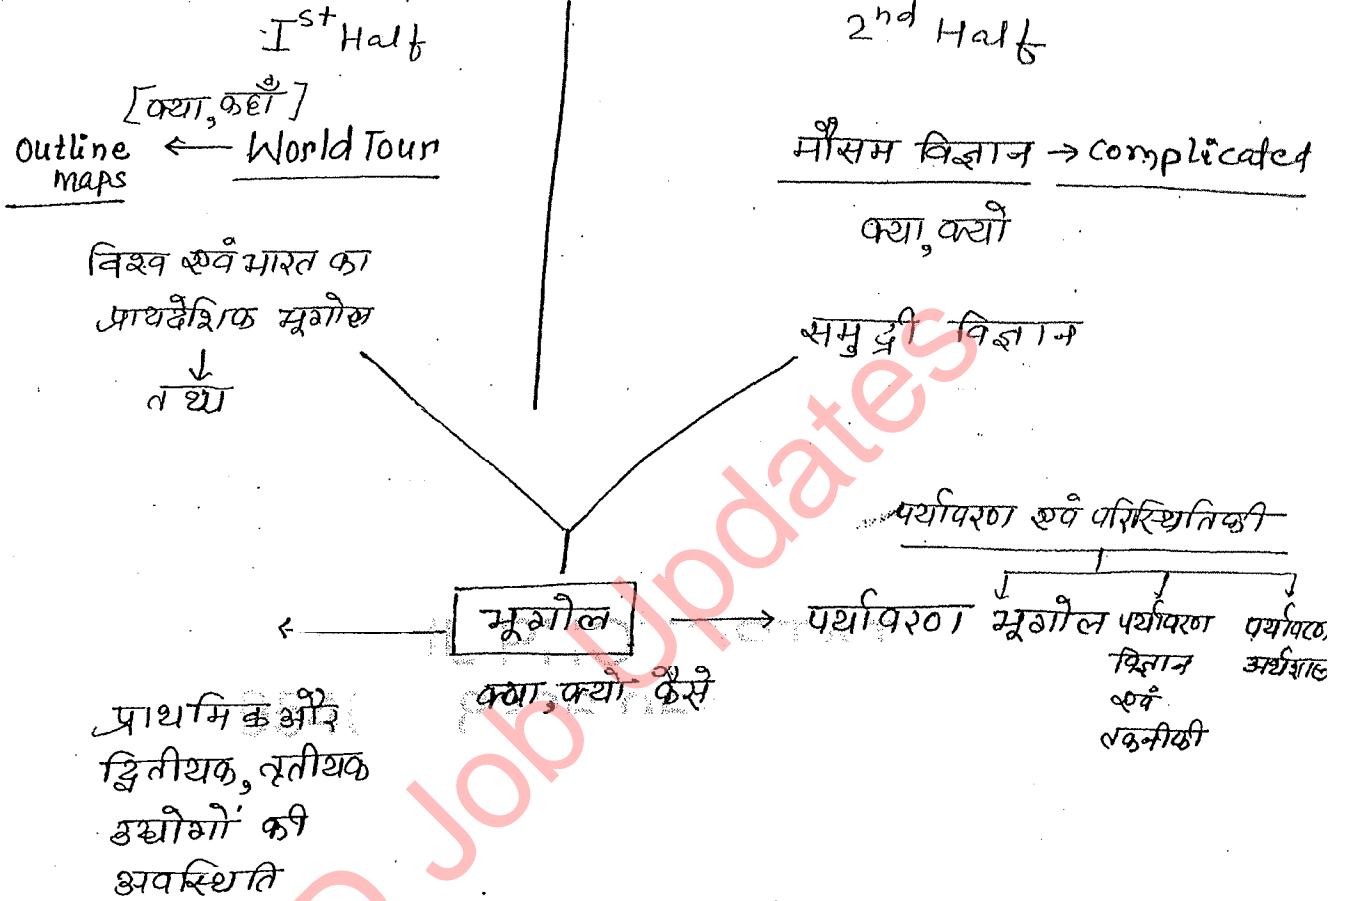 Ist Half
[क्या, कहाँ]
Outline maps ← World Tour
विश्व एवं भारत का
प्रायदेशिक भूगोल
↓
तथ्य
2nd Half
मौसम विज्ञान → complicated
क्या, क्यों
समुद्री विज्ञान
पर्यावरण एवं परिस्थितिकी
← भूगोल →
क्या, क्यों कैसे
पर्यावरण भूगोल
पर्यावरण
विज्ञान
एवं
तकनीकी
पर्यावरण
प्राथमिक और
द्वितीयक, तृतीयक
उद्योगों की
अवस्थिति
Job Updates